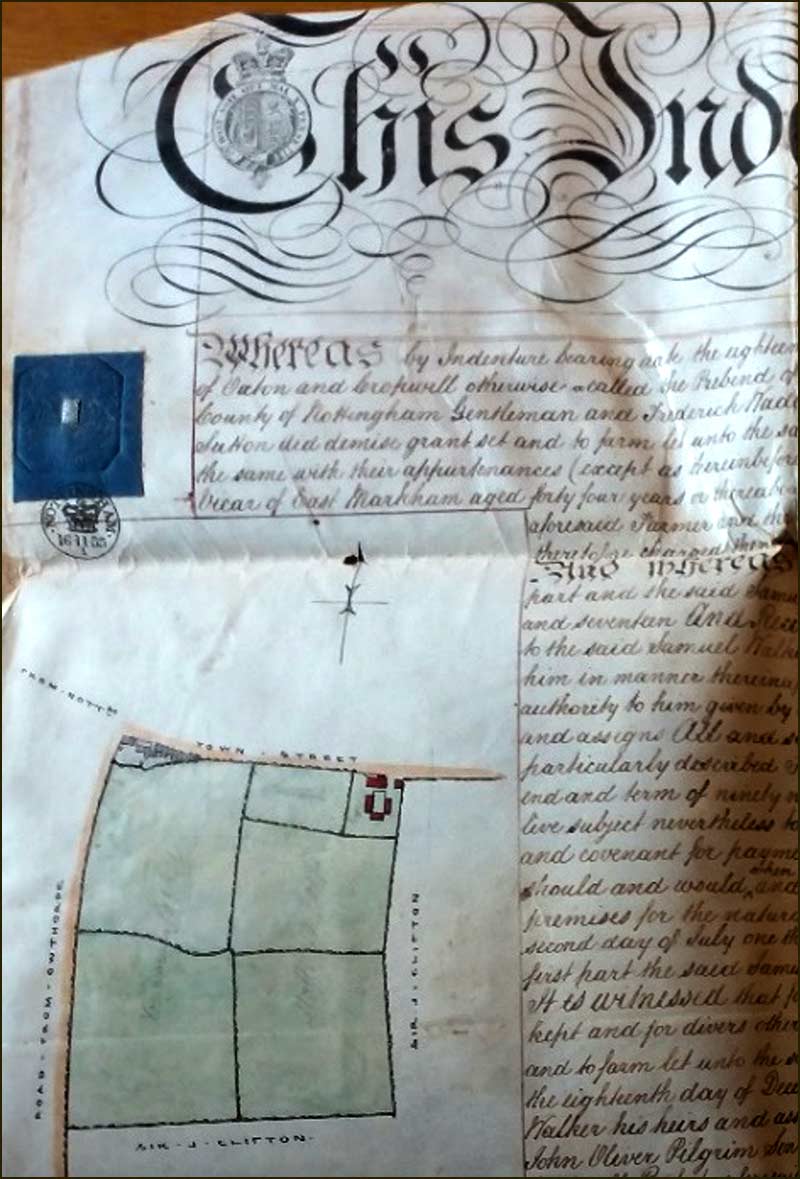 This Inde
Whereas by Indenture bearing date the eighteen
of Oxton and Cropwell otherwise called the Prebend of
County of Nottingham Gentleman and Frederick
Sutton did demise grant set and to farm let unto the sa
the same with their appurtenances (except as thereinbefore
Vicar of East Markham aged forty four years or thereabou
aforesaid Farmer and th
therefore charged them
And Whereas
part and the said Samu
and seventeen And
to the said Samuel Walke
him in manner thereina
authority to him given by
and assigns All and s
particularly described
end and term of ninety n
live subject nevertheless to
and covenant for payme
should and would when and
premises for the natura
second day of July one th
first part the said Samu
It is witnessed that f
kept and for divers other
and to farm let unto the s
the eighteenth day of Dec
Walker his heirs and ass
John Oliver Pilgrim Son
FROM · NOTTM
TOWN · STREET
ROAD · FROM · OWTHORPE
SIR · J · CLIFTON
SIR · J · CLIFTON ·